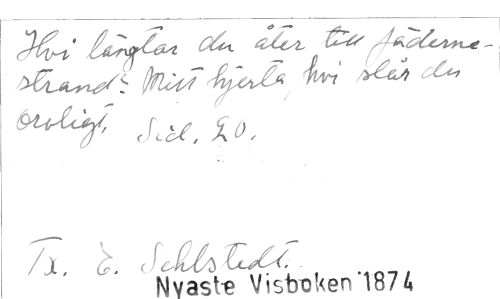 Hvi längtar du åter till fäderne-
strand? Mitt hjerta, hvi slår du
oroligt. Sid. 20.
Tx. E. Sehlstedt.
Nyaste Visboken 1874